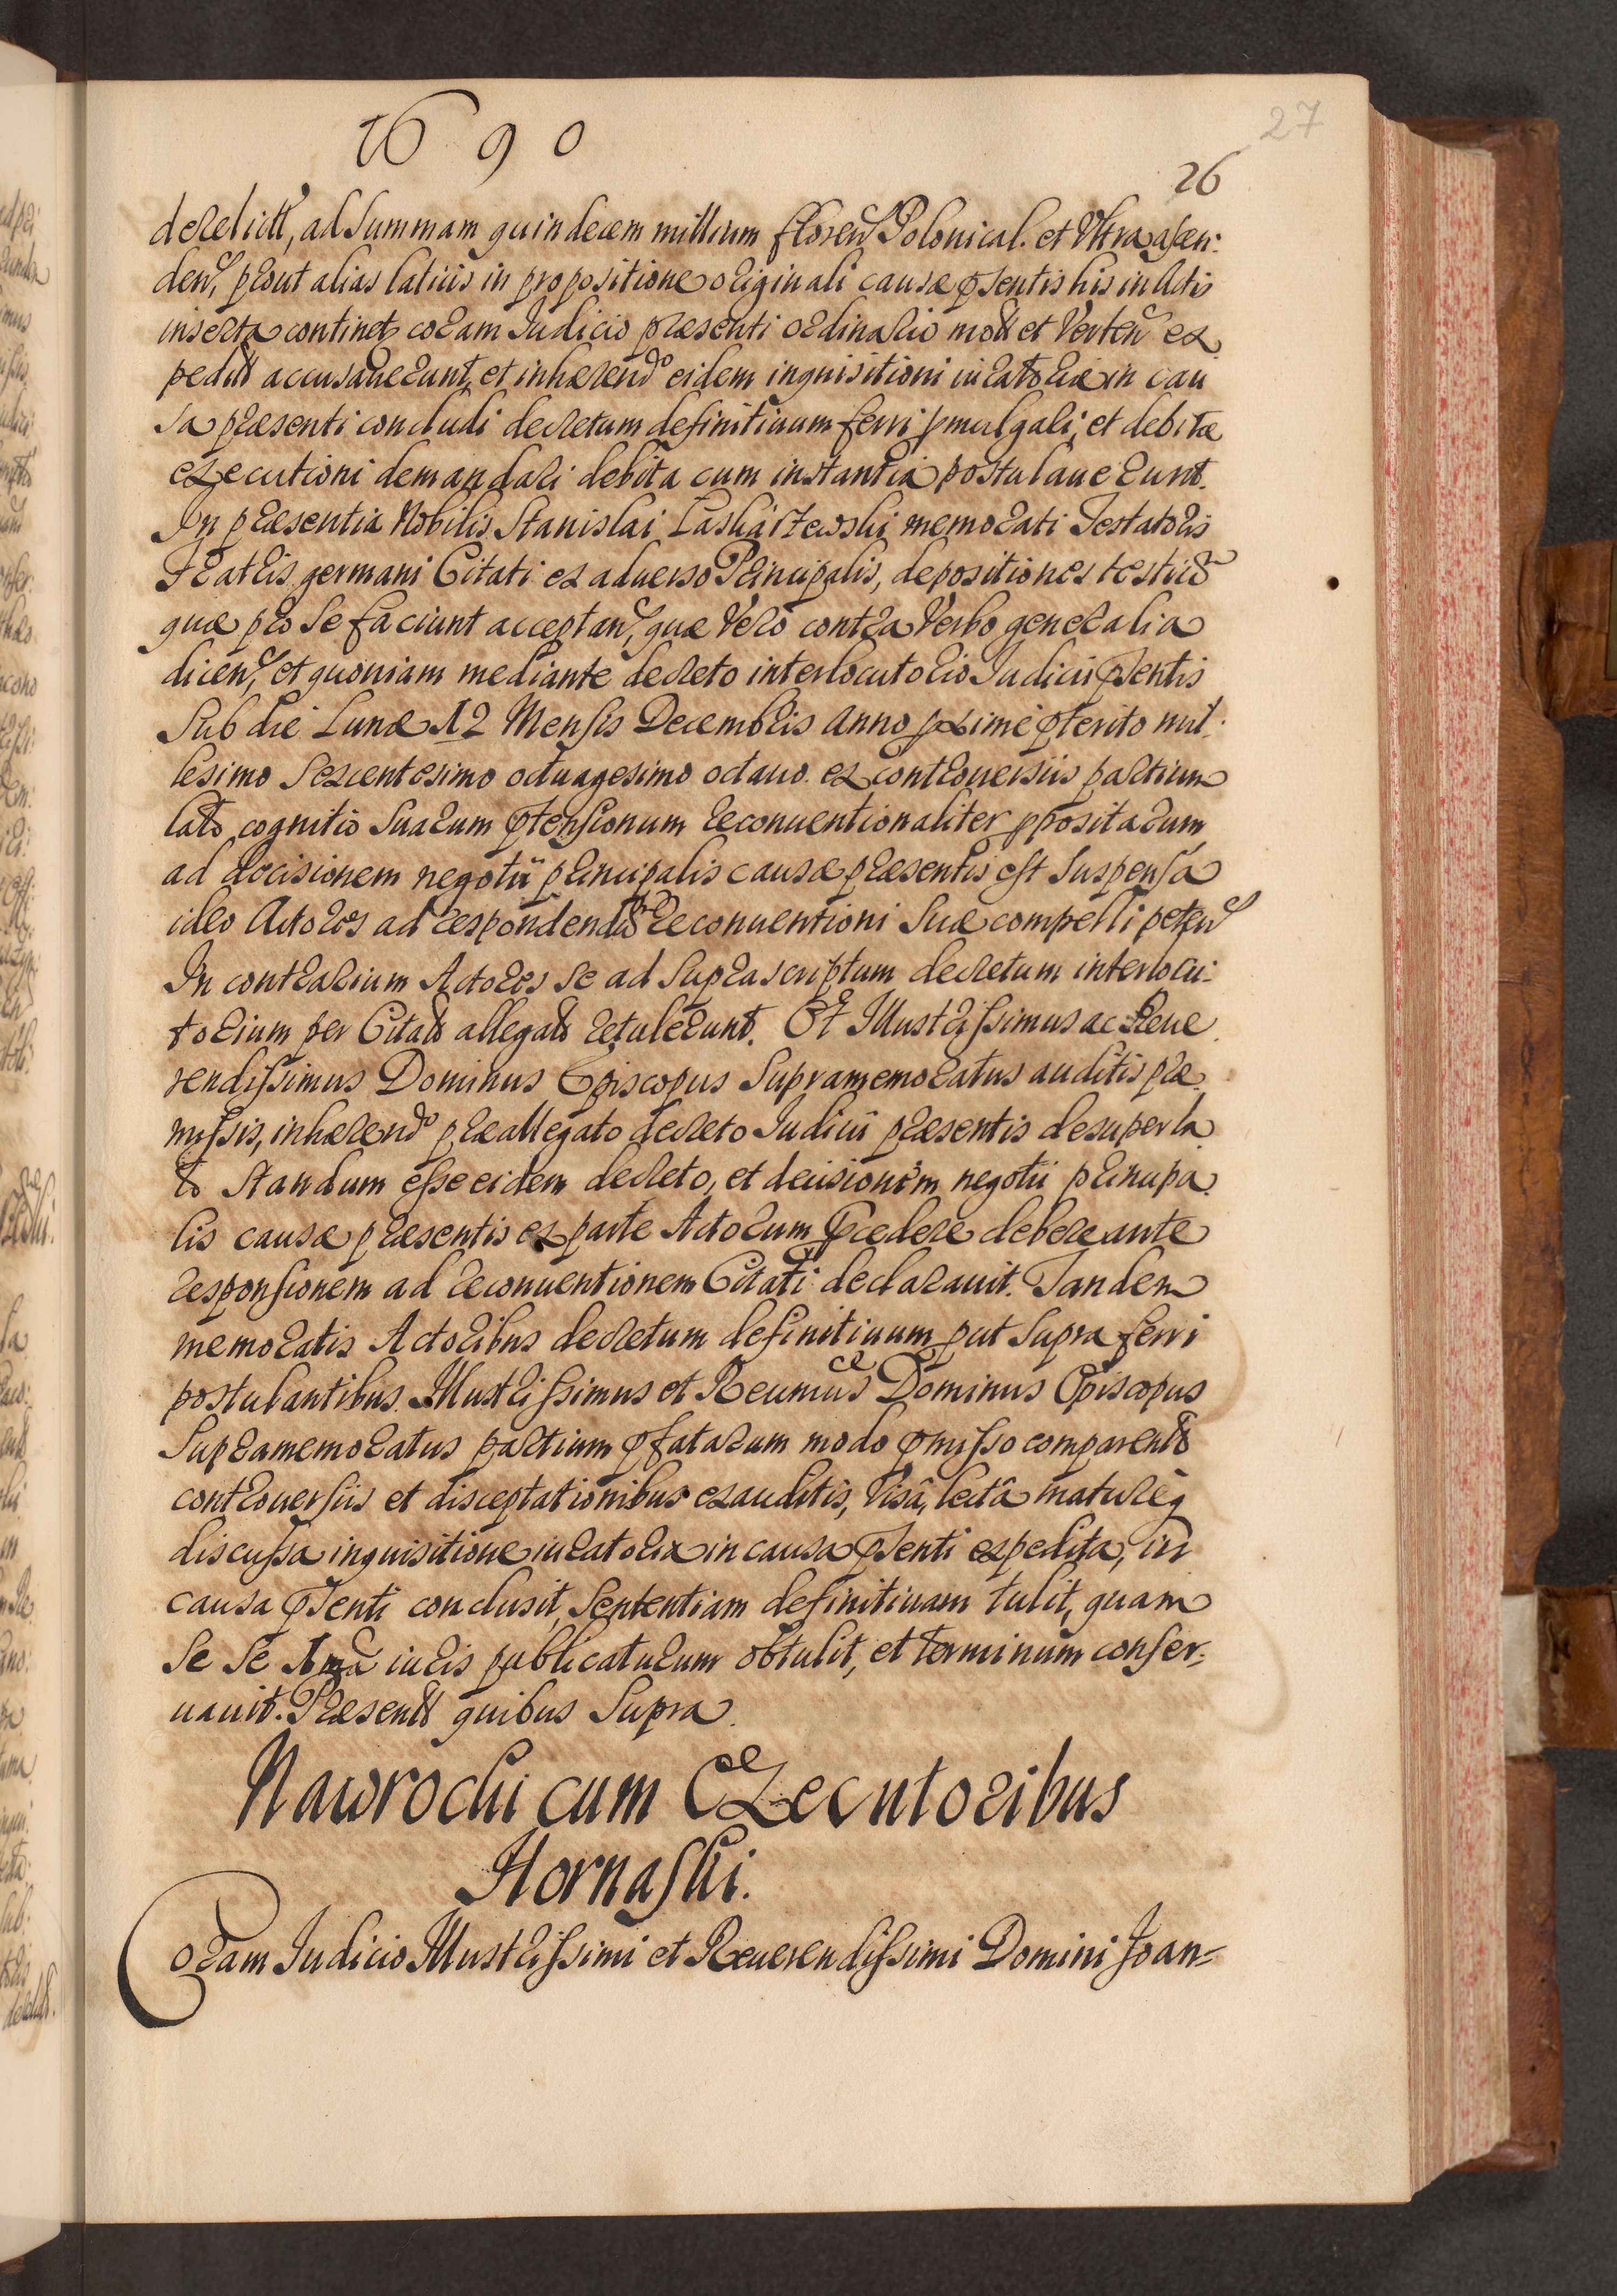 1690
27
26
derelict, ad Summam quindecem millium floren Polonical. et Vltra ascen:
den, prout alias latius in propositione originali causæ pṡentis his in Actis
inserta continet, coram Iudicio præsenti ordinario mot et Verten ex
pedit accusauerunt, et inhærendo eidem inquisitioni iuratoriæ in cau
sa præsenti concludi decretum definitiuum ferri pmulgari, et debitæ
executioni demandari debita cum instantia postulauerunt.
In præsentia Nobilis Stanislai Laskarzewski memorati Testatoris
Fratris germani Citati ex aduerso Principalis, depositiones testiu
quæ pro se faciunt acceptan, quæ Vero contra Verbo generalia
dicen, et quoniam mediante decreto interlocutorio Iudicii pṡentis
Sub die Lunæ 12 Mensis Decembris Anno pxime pterito mil:
lesimo Sexcentesimo octuagesimo octauo ex controuersiis partium
lato cognitio Suarum ptensionum reconuentionaliter ppositarum
ad decisionem negotii principalis causæ præsentis est Suspensa
ideo Actores ad respondend reconuentioni Suæ compelli peten
In contrarium Actores se ad Suprascriptum decretum interlocu:
torium per Citat allegat retulerunt. Et Illustrissimus ac Reue
rendissimus Dominus Episcopus Supramemoratus auditis præ
missis, inhærendo præallegato decreto Iudicii præsentis desuper la
to Standum esse eidem decreto, et decisionem negotii principa
lis causæ præsentis ex parte Actorum Pcedere debere ante
responsionem ad reconuentionem Citati declarauit. Tandem
memoratis Actoribus decretum definitiuum put Supra ferri
postulantibus. Illustrissimus et Reumus Dominus Episcopus
Supramemoratus partium pfatarum modo pmisso comparent
controuersiis et disceptationibus exauditis, Visâ, lectâ matureq
discussa inquisitione iuratoria in causa pṡenti expedita, in
causa pṡenti conclusit, Sententiam definitiuam tulit, quam
Se Se Ima iuris publicaturum obtulit, et terminum conser:
uauit. Præsent quibus Supra.
Nawrocki cum Executoribus
Hornaski.
Coram Iudicio Illustrissimi et Reuerendissimi Domini Joan=